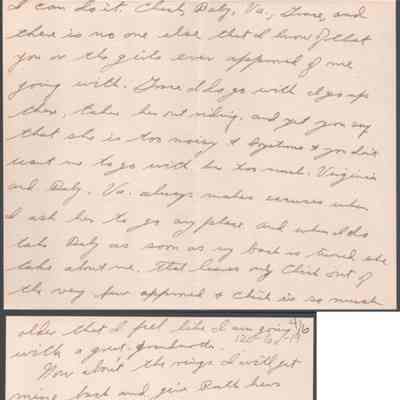 I can do it. Chick, Daly, Va., Grace, and
there is no one else that I know of that
you or the girls ever approved of me
going with. Grace I do go with & go up
there, takes her out riding, and yet you say
that she is too noisy & boystrous & you don't
want me to go with her too much. Virginia
and Daly. Va. always makes excuses when
I ask her to go any place, and when I do
take Daly as soon as my back is turned she
talks about me. That leaves only Chick out of
the very few approved & Chick is so much
older that I feel like I am going
with a great-grandmother.
Now about the rings I will get
mine back and give Ruth hers